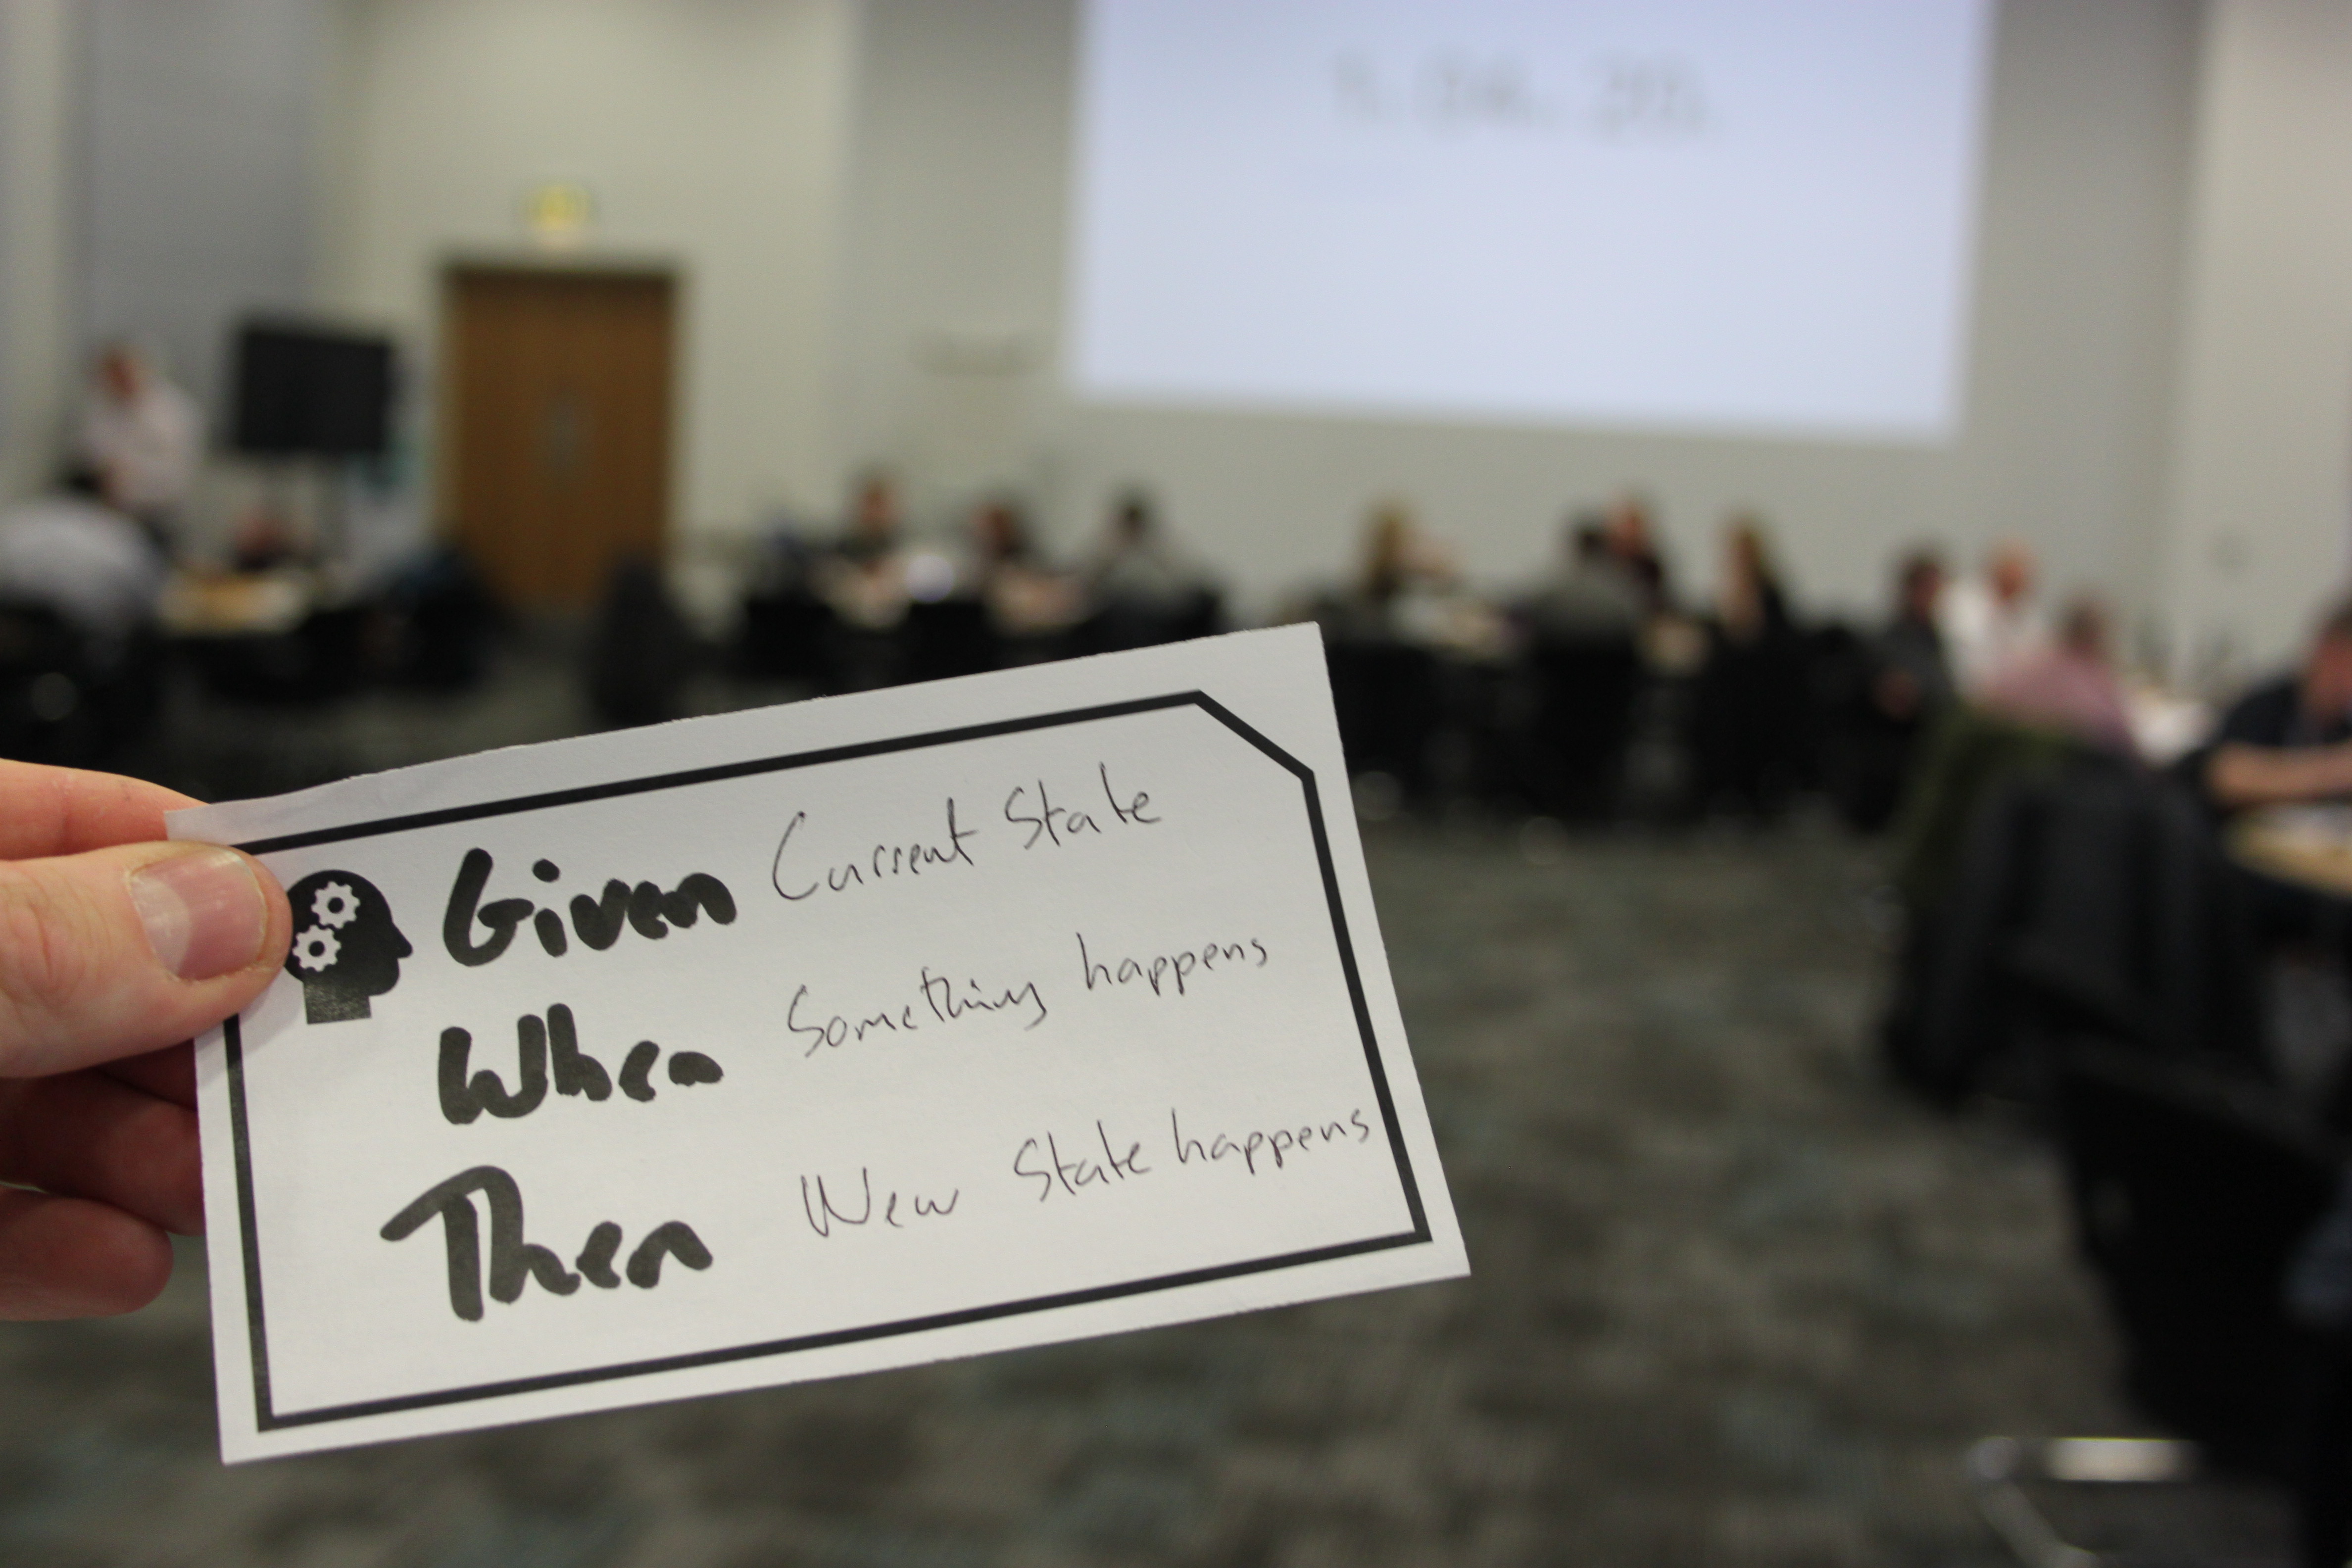 Given Current State
When Something happens
Then New State happens